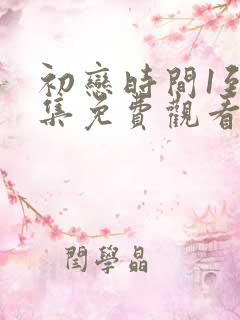 初戀時間1到
集免費觀看
閆學晶